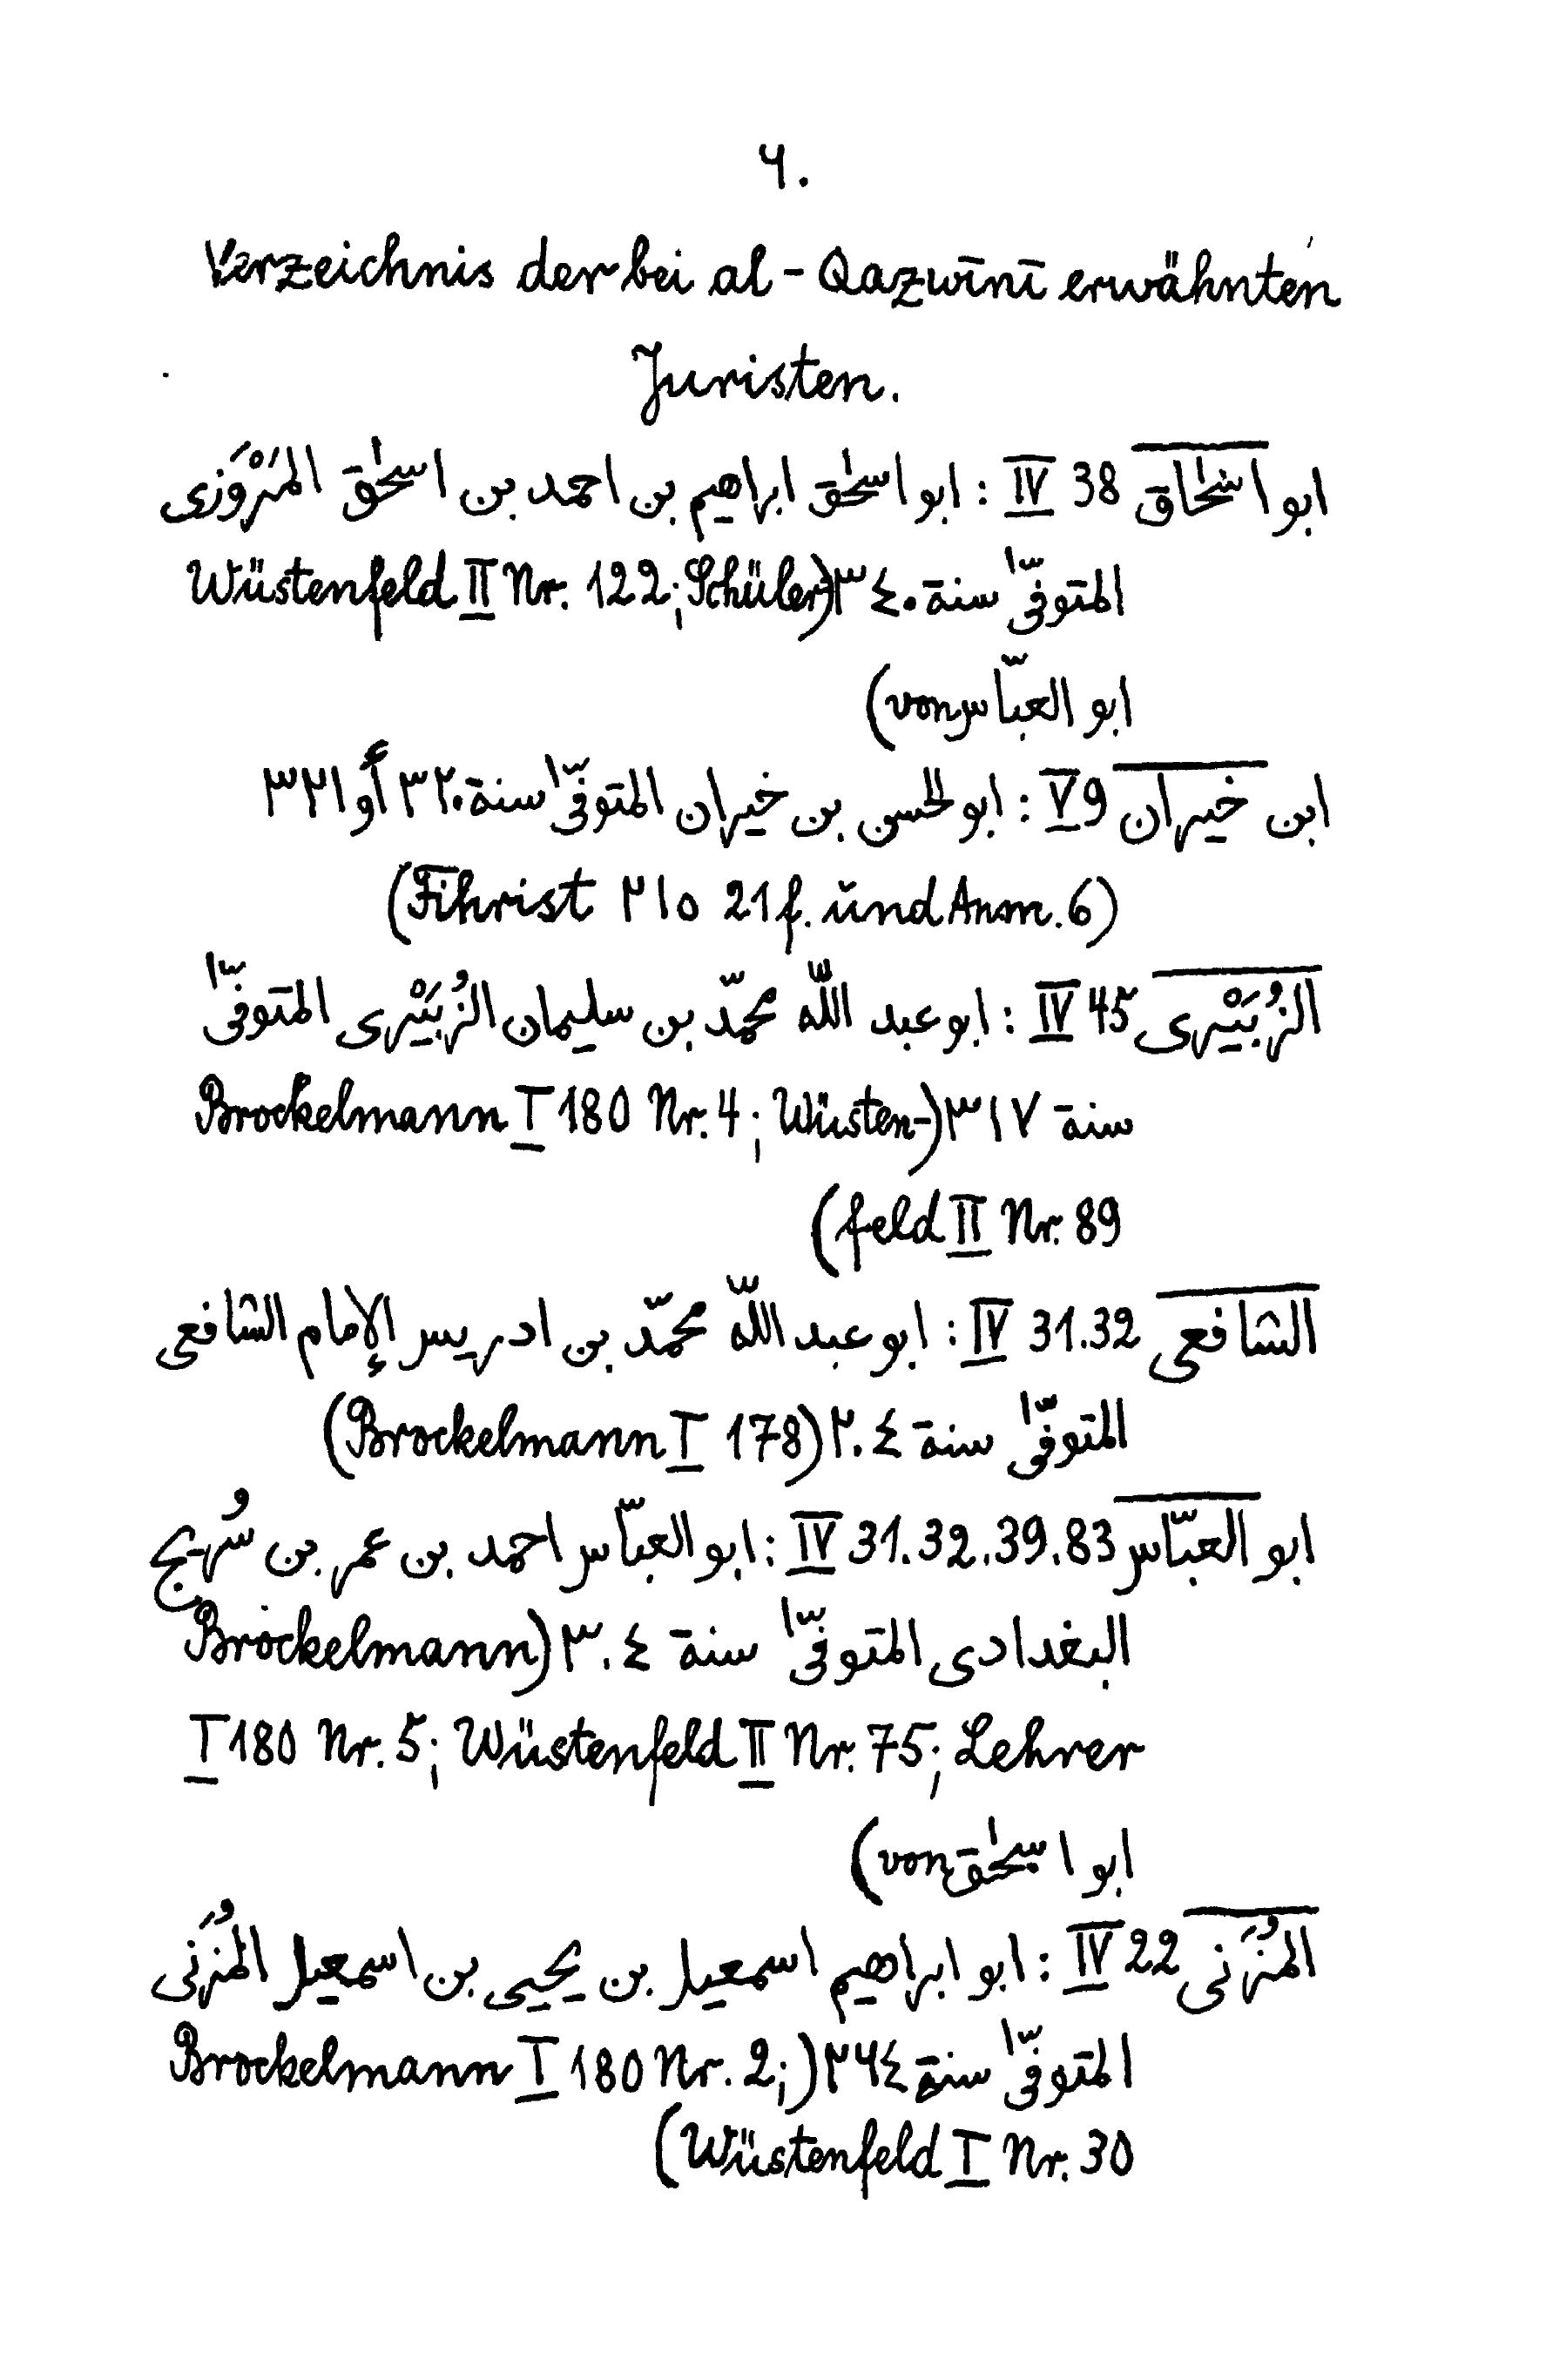 ٤.
Verzeichnis der bei al-Qazwīnī erwähnten
Juristen.
ابو اسْحٰاق IV 38 : ابو اسحٰق ابراهيم بن احمد بن اسحٰق المَرْوَزى
المتوفّىٰ سنة ٣٤٠ (Wüstenfeld II Nr. 122; Schüler
von ابو العبّاس)
ابن خيران V 9 : ابو الحسن بن خيران المتوفّىٰ سنة ٣٢٠ أو ٣٢١
(Fihrist ٢١٥ 21 f. und Anm. 6)
الزُبَيْرى IV 45 : ابو عبد اللّه محمّد بن سليمان الزُبَيْرى المتوفّىٰ
سنة ٣١٧ (Brockelmann I 180 Nr. 4; Wüsten-
feld II Nr. 89)
الشافعى IV 31.32 : ابو عبد اللّه محمّد بن ادريس الإمام الشافعى
المتوفّىٰ سنة ٢٠٤ (Brockelmann I 178)
ابو العبّاس IV 31.32.39.83 : ابو العبّاس احمد بن عمر بن سُريج
البغدادى المتوفّىٰ سنة ٣٠٤ (Brockelmann
I 180 Nr. 5; Wüstenfeld II Nr. 75; Lehrer
von ابو اسحٰق)
المُزَنى IV 22 : ابو ابراهيم اسمعيل بن يحيى بن اسمعيل المُزَنى
المتوفّىٰ سنة ٢٦٤ (Brockelmann I 180 Nr. 2;
Wüstenfeld I Nr. 30)